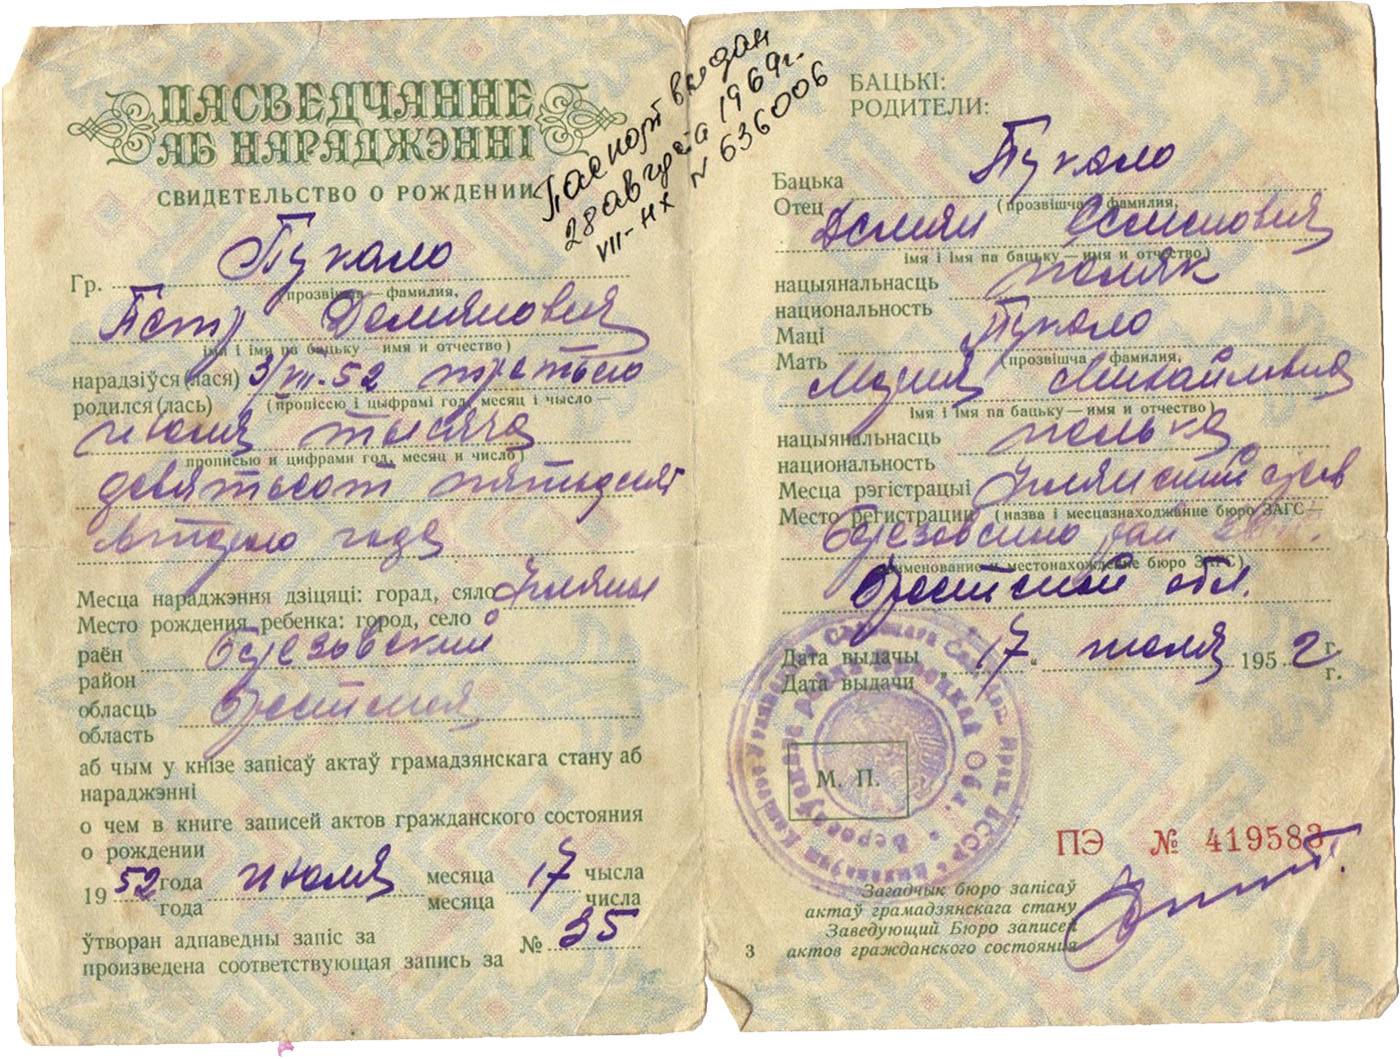 ПАСВЕДЧАННЕ
АБ НАРАДЖЭННІ
СВИДЕТЕЛЬСТВО О РОЖДЕНИИ
Паспорт выдан
28 августа 1969г.
VII-НХ N 636006
Гр. Пукало
прозвішча — фамилия,
Петр Демянович
імя і імя па бацьку — имя и отчество)
нарадзіўся (лася) 3/VII-52 третьего
родился (лась) (пропіссю і цыфрамі год, месяц і чысло —
июля тысяча
прописью и цифрами год, месяц и число)
девятьсот пятьдесят
второго года
Месца нараджэння дзіцяці: горад, сяло
Место рождения ребенка: город, село
раён Березовский
район
обласць Брестская
область
аб чым у кнізе запісаў актаў грамадзянскага стану аб
нараджэнні
о чем в книге записей актов гражданского состояния
о рождении
19 52 года июля месяца 17 чысла
года месяца числа
ўтворан адпаведны запіс за № 35
произведена соответствующая запись за
БАЦЬКІ:
РОДИТЕЛИ:
Бацька Пукало
Отец (прозвішча — фамилия,
Демян Семенович
імя і імя па бацьку — имя и отчество)
нацыянальнасць поляк
национальность
Маці Пукало
Мать (прозвішча — фамилия,
Мария Михайловна
імя і імя па бацьку — имя и отчество)
нацыянальнасць полька
национальность
Месца рэгістрацыі
Место регистрации (назва і месцазнаходжанне бюро ЗАГС —
Березовского
наименование и местонахождение бюро ЗАГС)
Брестской обл.
Дата выдачы „17“ июля 1952 г.
Дата выдачи г.
М. П.
ПЭ № 419583
Загадчык бюро запісаў
актаў грамадзянскага стану
Заведующий Бюро записей
3 актов гражданского состояния